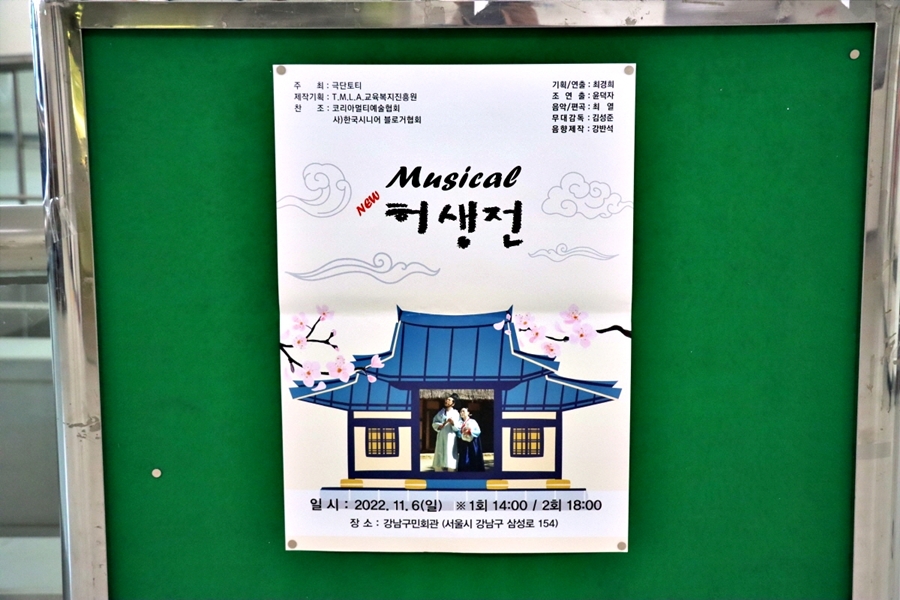 주 최 : 극단토티
제작기획 : T.M.L.A.교육복지진흥원
찬 조 : 코리아멀티예술협회
사)한국시니어 블로거협회
기획/연출 : 최경희
조 연 출 : 윤덕자
음악/편곡 : 최 열
무대감독 : 김성준
음향제작 : 강반석
Musical
NEW 허생전
일 시 : 2022. 11. 6(일) ※ 1회 14:00 / 2회 18:00
장 소 : 강남구민회관 (서울시 강남구 삼성로 154)